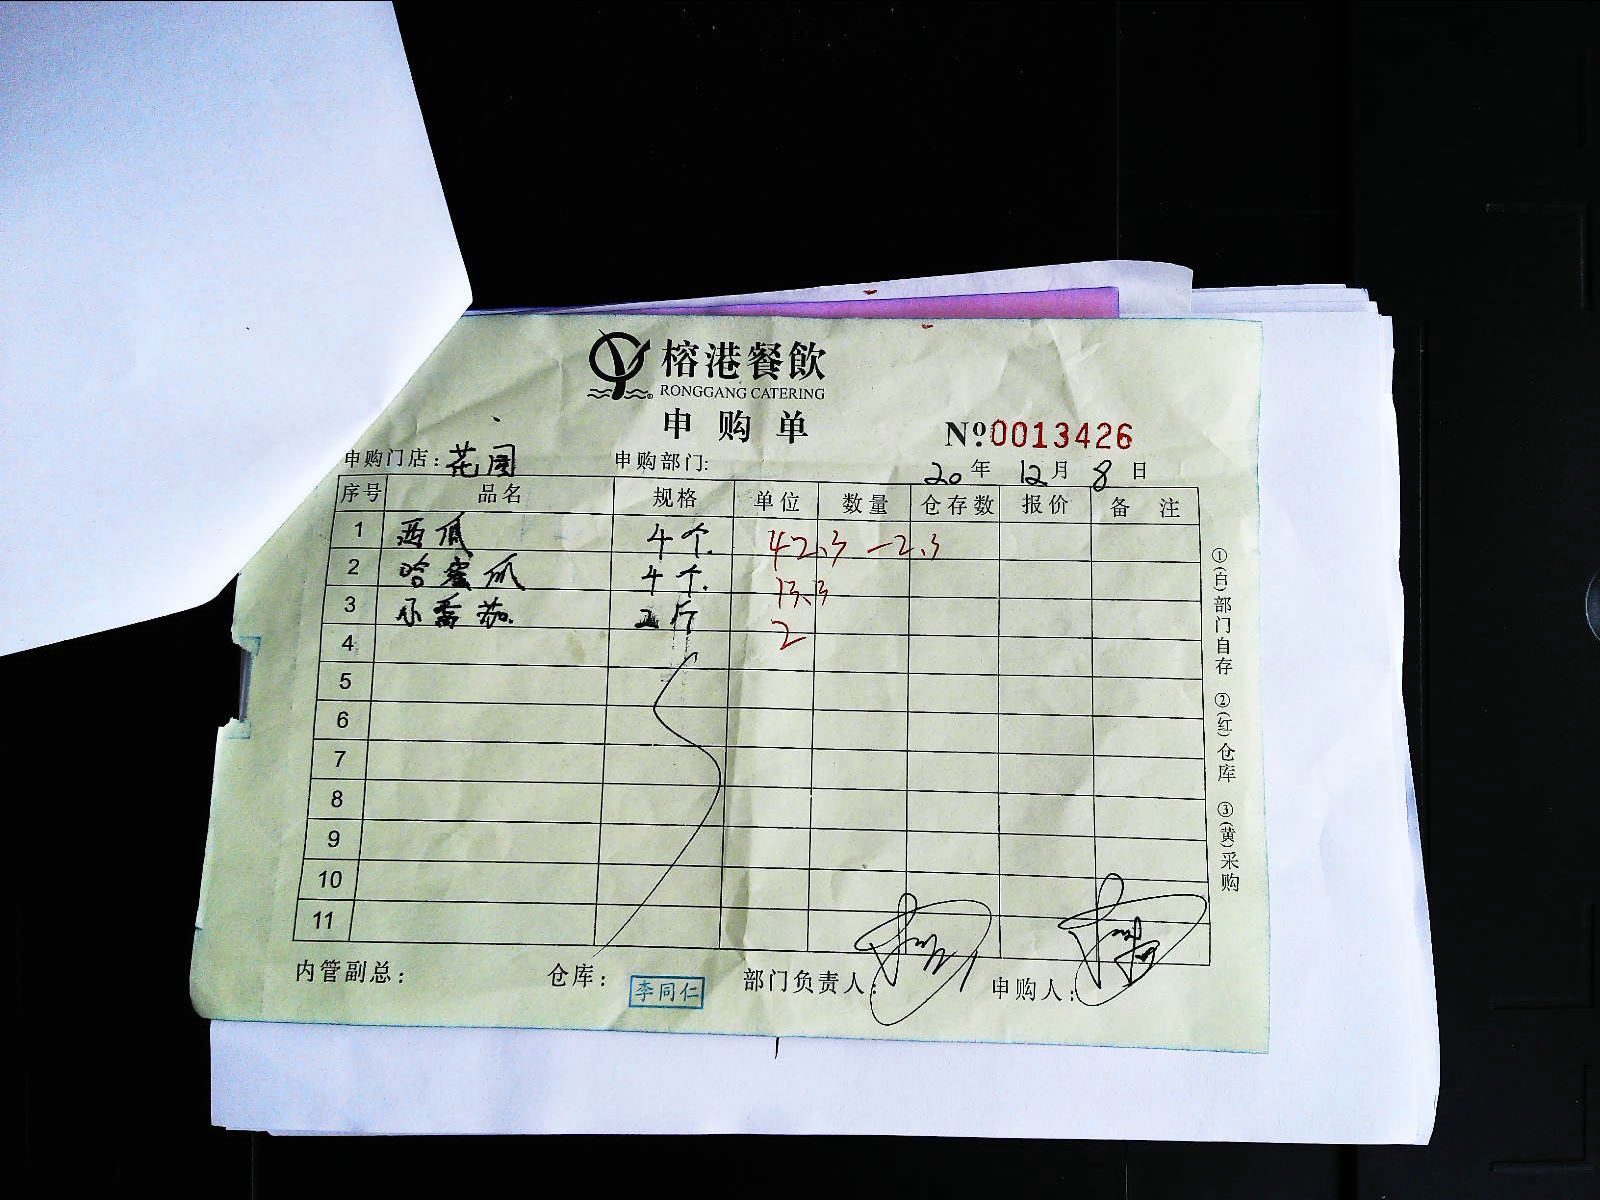 榕港餐飲
RONGGANG CATERING
申购单
Nº0013426
申购门店：花园 申购部门: 20年 12月 8日
序号 品名 规格 单位 数量 仓存数 报价 备注
1 西瓜 4个. 42.3 -2.3
2 哈蜜瓜 4个. 13.3
3 小番茄. 2斤 2
4
5
6
7
8
9
10
11
内管副总： 仓库：李同仁 部门负责人： 申购人：
①(白)部门自存 ②(红)仓库 ③(黄)采购